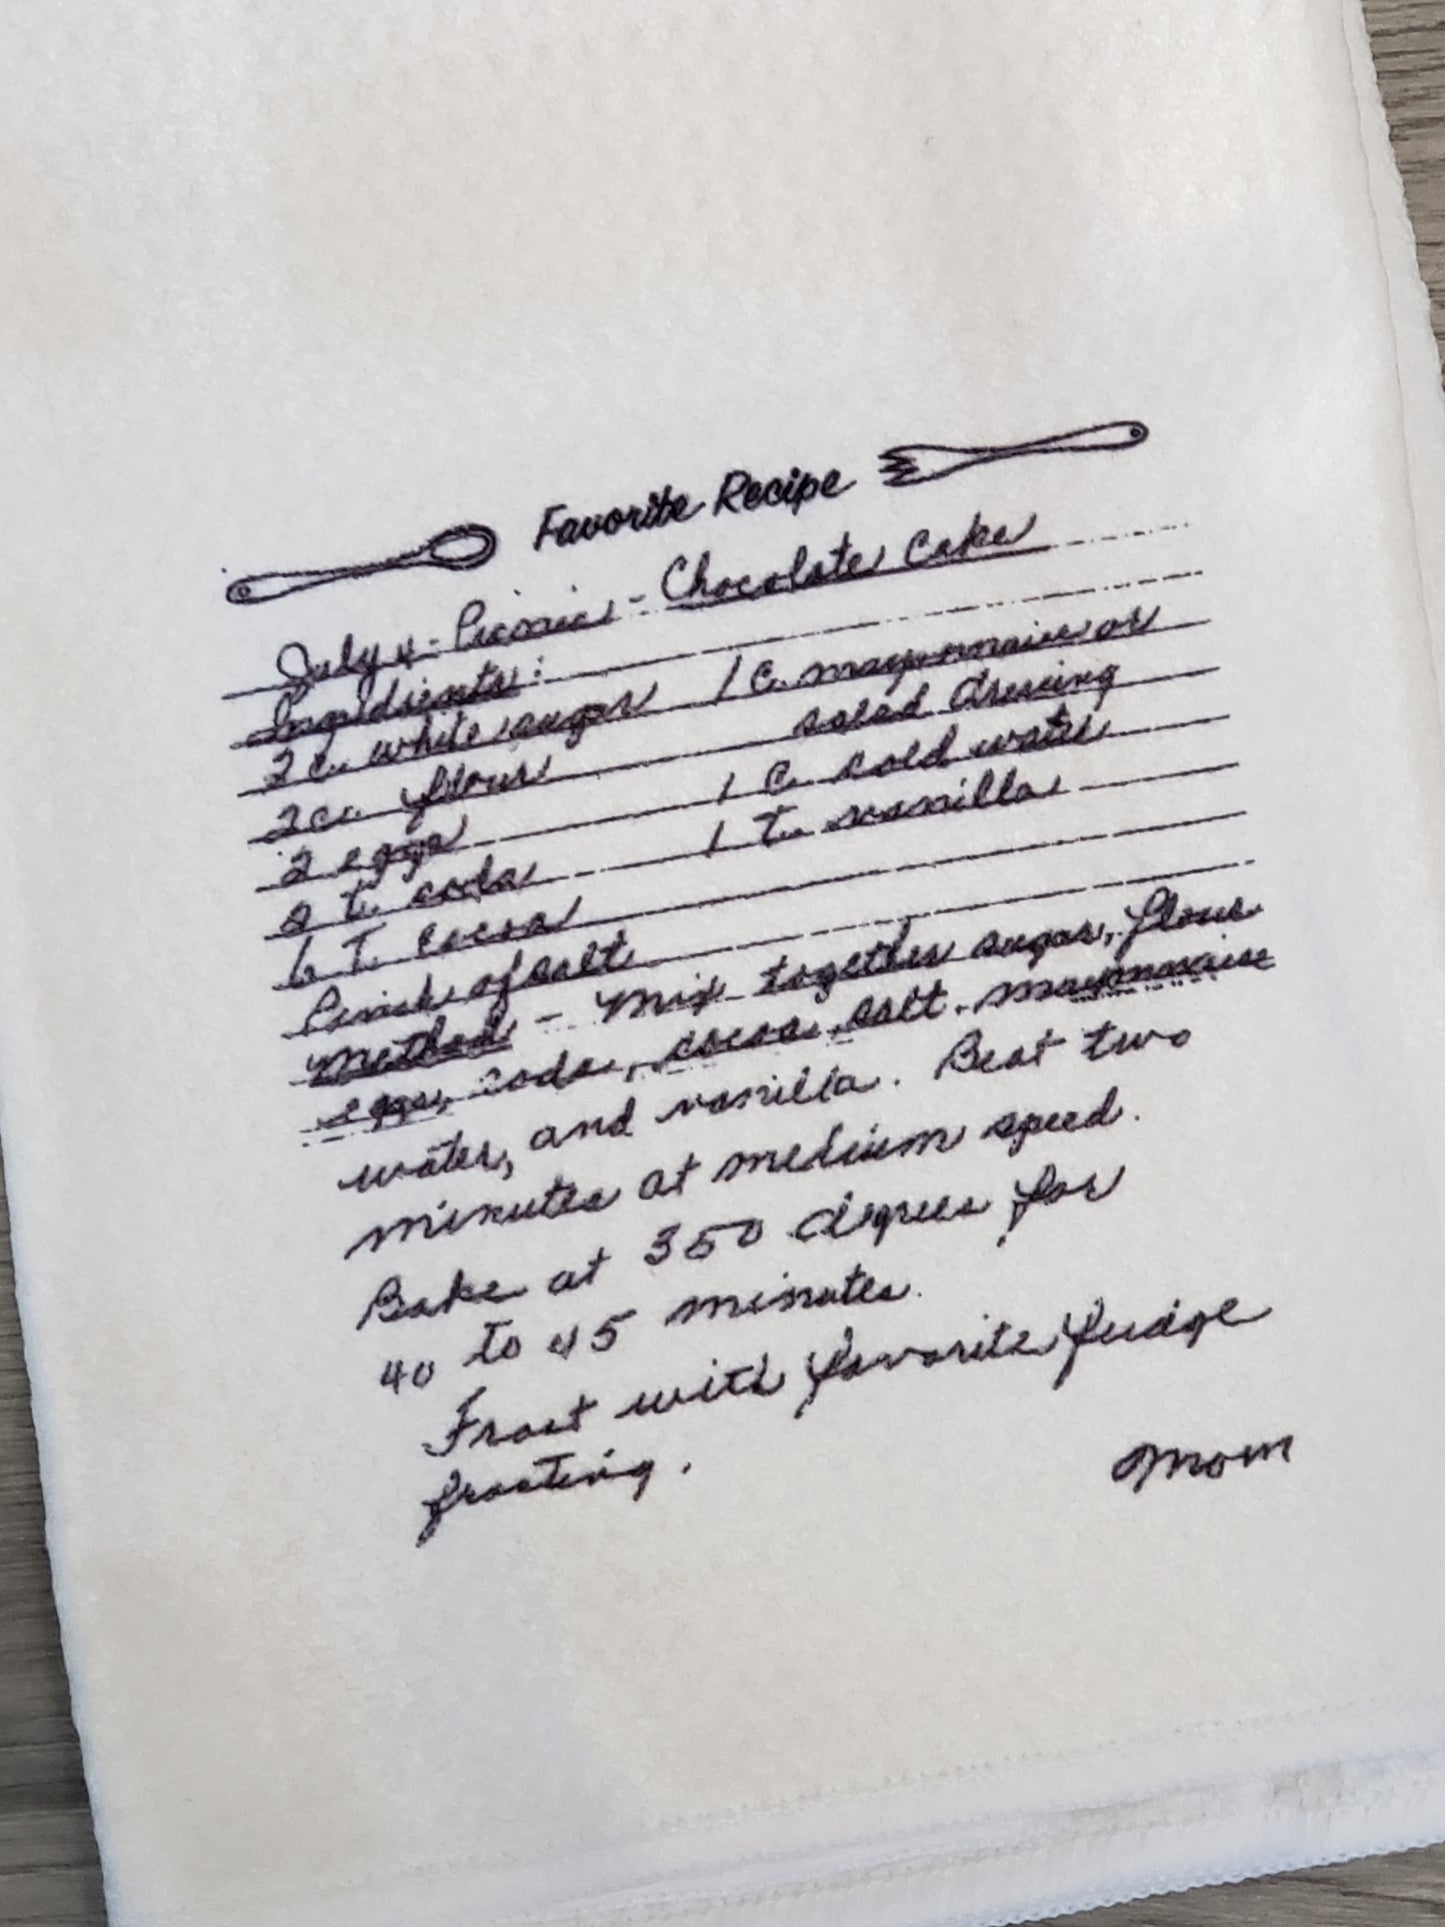 Favorite Recipe
July 4 - Picnic - Chocolate Cake
Ingredients:
2 c. white sugar 1 c. mayonnaise or
2 c. flour salad dressing
2 eggs 1 c. cold water
2 t. soda 1 t. vanilla
6 T. cocoa
Pinch of salt
Method - Mix together sugar, flour
eggs, soda, cocoa, salt, mayonnaise
water, and vanilla. Beat two
minutes at medium speed.
Bake at 350 degrees for
40 to 45 minutes.
Frost with favorite fudge
frosting.
Mom